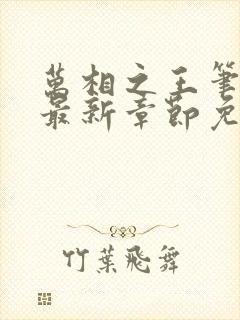 萬相之王筆
最新章節免
竹葉飛舞